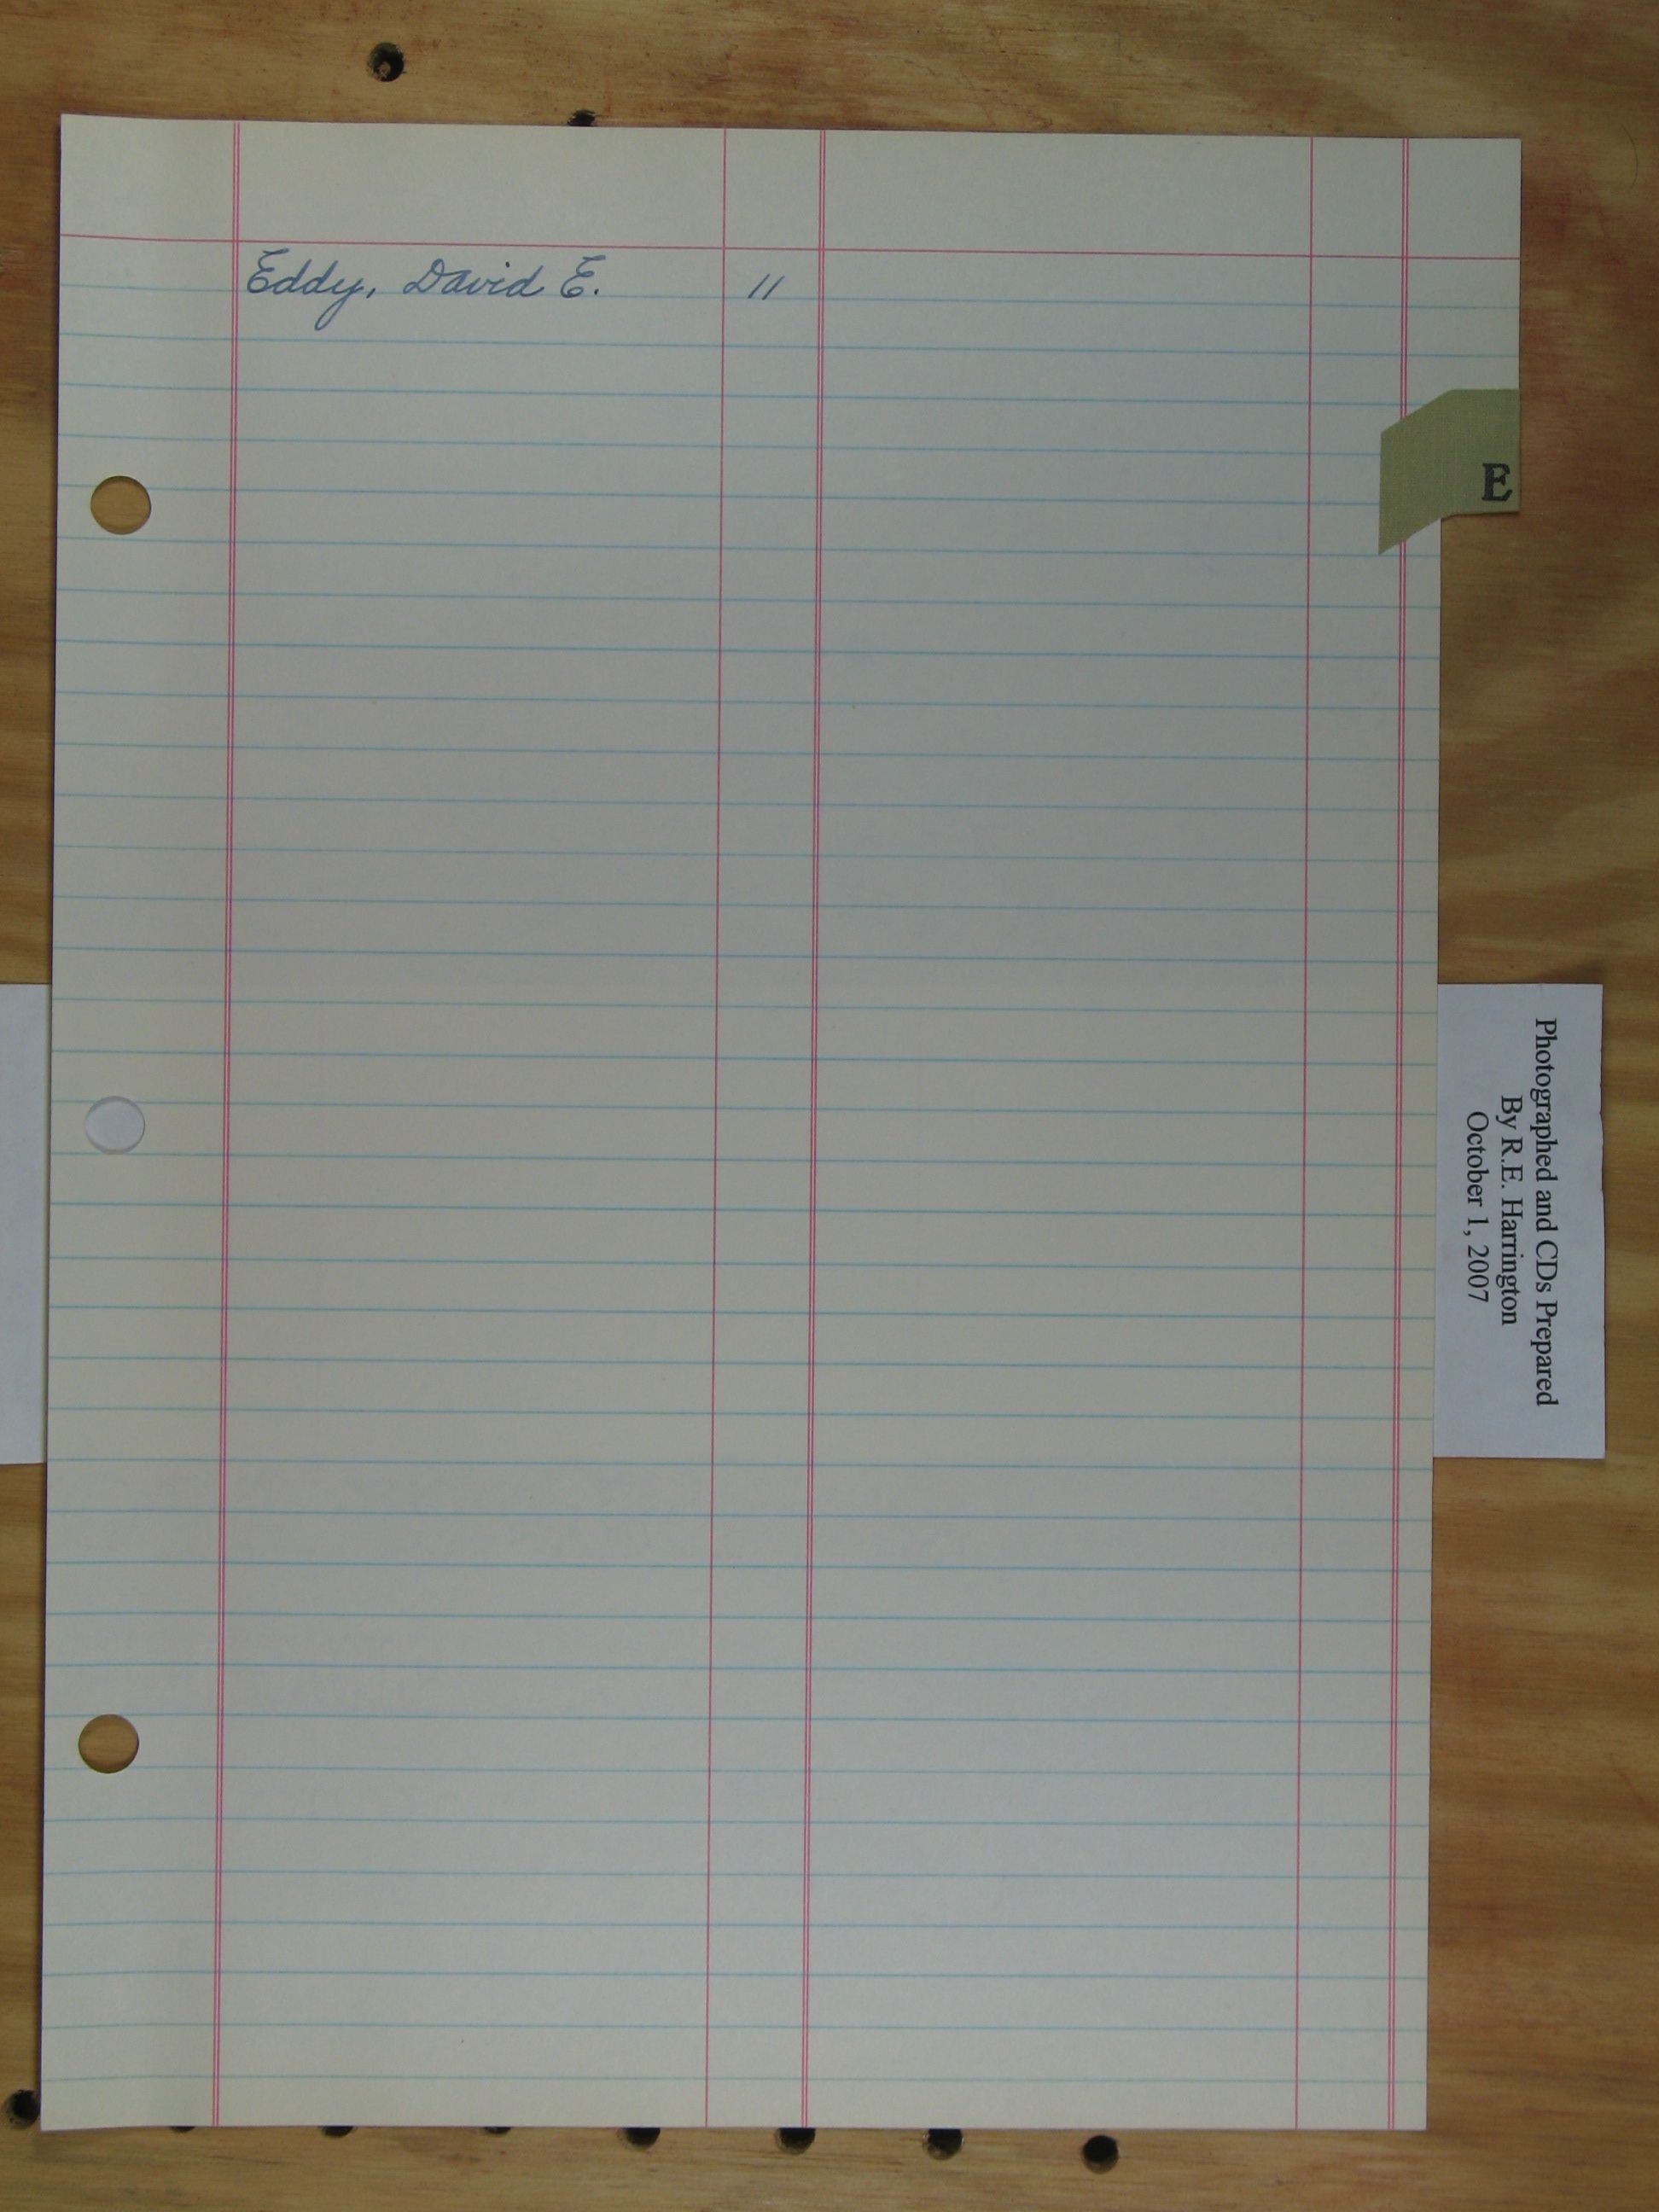 Eddy, David E. 11
E
Photographed and CDs Prepared
By R.E. Harrington
October 1, 2007